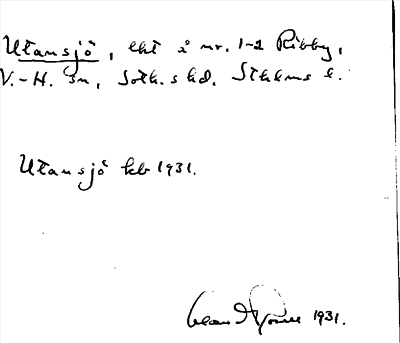 Utansjö, lht å nr. 1-2 Ribby,
V.-H. sn, Soth. s hd. Sthlms l.
Utansjö kb 1931.
1931.